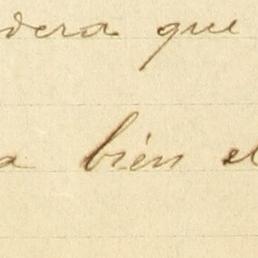 dera que
a bién el